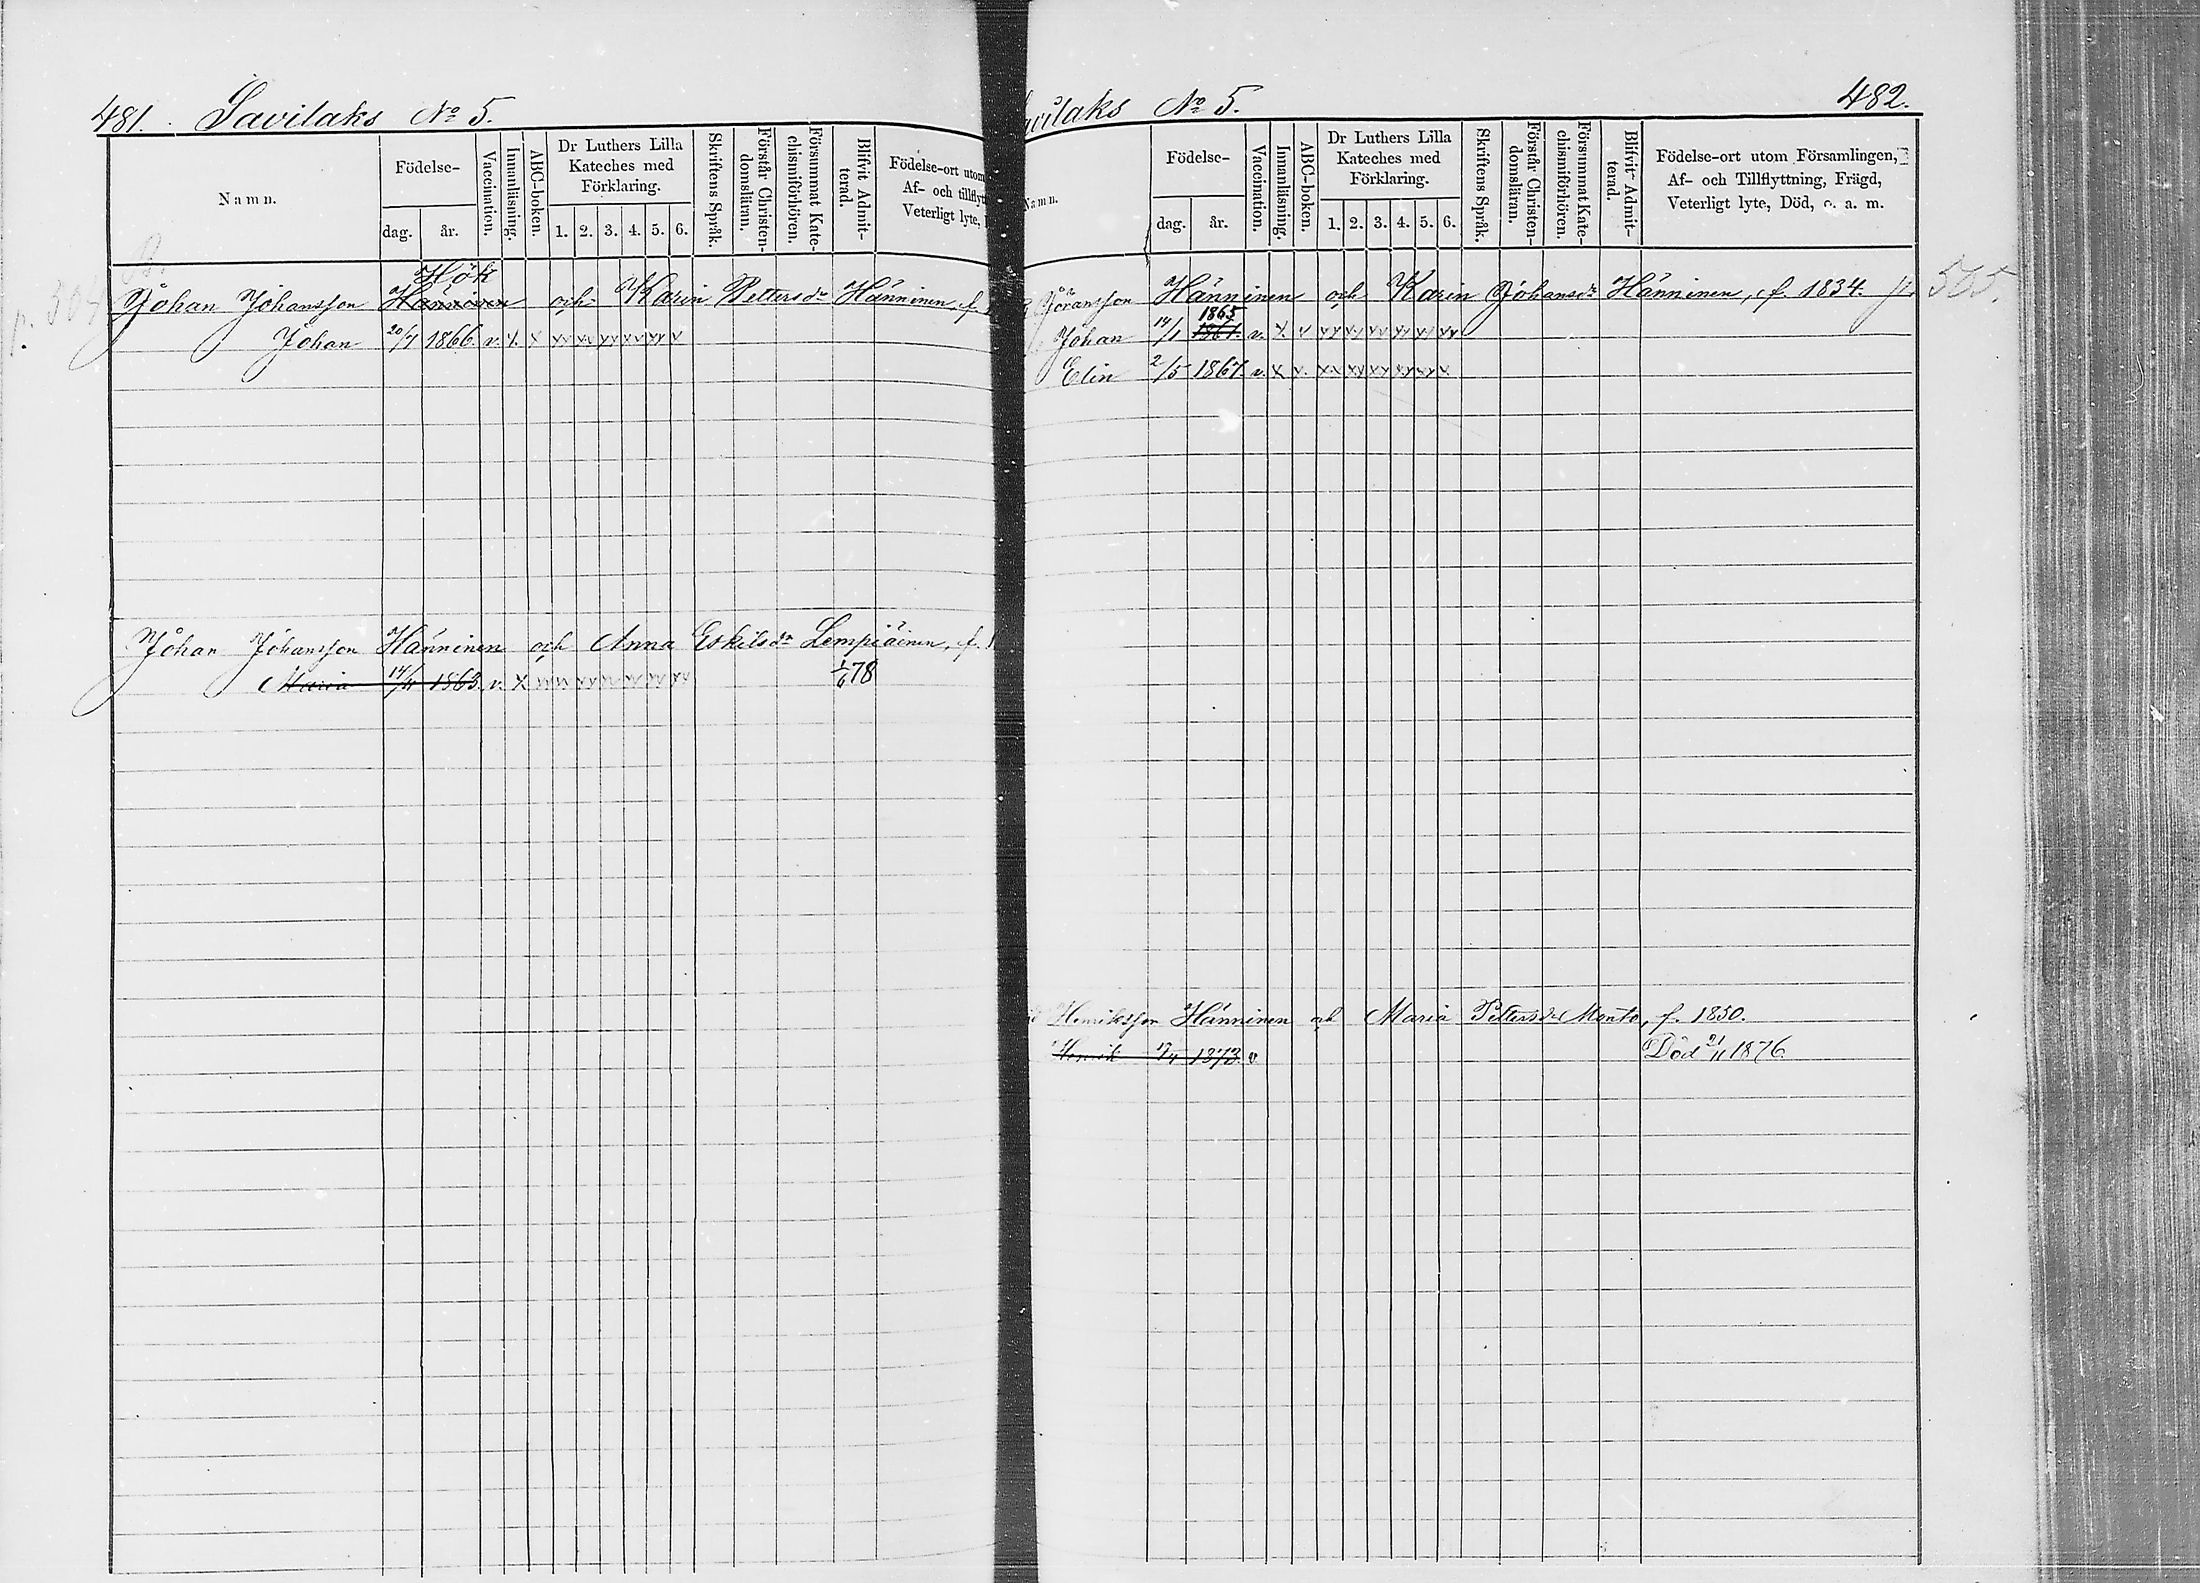 481. Savilaks No 5.
Namn.
Födelse-
dag. år.
Vaccination.
Innanläsning.
ABC-boken.
Dr Luthers Lilla
Kateches med
Förklaring.
1. 2. 3. 4. 5. 6.
Skriftens Språk.
Förstår Christen-
domsläran.
Försummat Kate-
chismiförhören.
Blifvit Admit-
terad.
Födelse-ort utom
Af- och tillflyt
Veterligt lyte,
Hök
Johan Johansson Hänninen och Karin Pettersdr Hänninen, f.
Johan 20/7 1866. v. x x
Johan Johansson Hänninen och Anna Eskilsdr Lempiäinen, f. 1
Maria 14/4 1863. v. x 1/6 78
avilaks No 5. 482.
Namn.
Födelse-
dag. år.
Vaccination.
Innanläsning.
ABC-boken.
Dr Luthers Lilla
Kateches med
Förklaring.
1. 2. 3. 4. 5. 6.
Skriftens Språk.
Förstår Christen-
domsläran.
Försummat Kate-
chismiförhören.
Blifvit Admit-
terad.
Födelse-ort utom Församlingen,
Af- och Tillflyttning, Frägd,
Veterligt lyte, Död, o. a. m.
Göransson Hänninen och Karin Johansdr Hänninen, f. 1834. p. 565.
1865
Johan 14/1 1861. v. x v
Elin 2/5 1867. v. x v.
Henriksson Hänninen och Maria Pettersdr Monto, f. 1850.
Henrik 17/4 1873. v Död 21/11 1876.